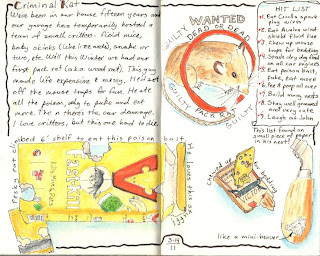 Criminal Rat
We've been in our house fifteen years and
our garage has temporarily hosted a
team of small critters: field mice,
baby skinks (like mini newts), snake or
two, etc. Well this winter we had our
first pack rat (aka wood rat). This guy
made life expensive & messy. He'd set
off the mouse traps for fun. He ate
all the poison, stay to puke and eat
more. Then there's the car damage.
I love critters, but this one had to die.
WANTED
DEAD OR DEAD
GUILTY
GUILTY PACK RAT GUILTY
HIT LIST
1. Eat Corolla spark
plug wires
2. Eat Avalon wind
shield fluid line
3. Chew up mouse
traps for bedding
4. Stash dry dog food
on all car engines
5. Eat poison bait,
puke, eat more
6. Pee & poop all over
7. Build many nests
8. Stay well groomed
and very cute
9. Laugh at John
This list found on
small piece of paper
in his nest!
climbed 6' shelf to eat this poison bait
Pesky
He loves this stuff!
FAST-KILL
chewed up
for bedding
like a mini-beaver.
3-14
11